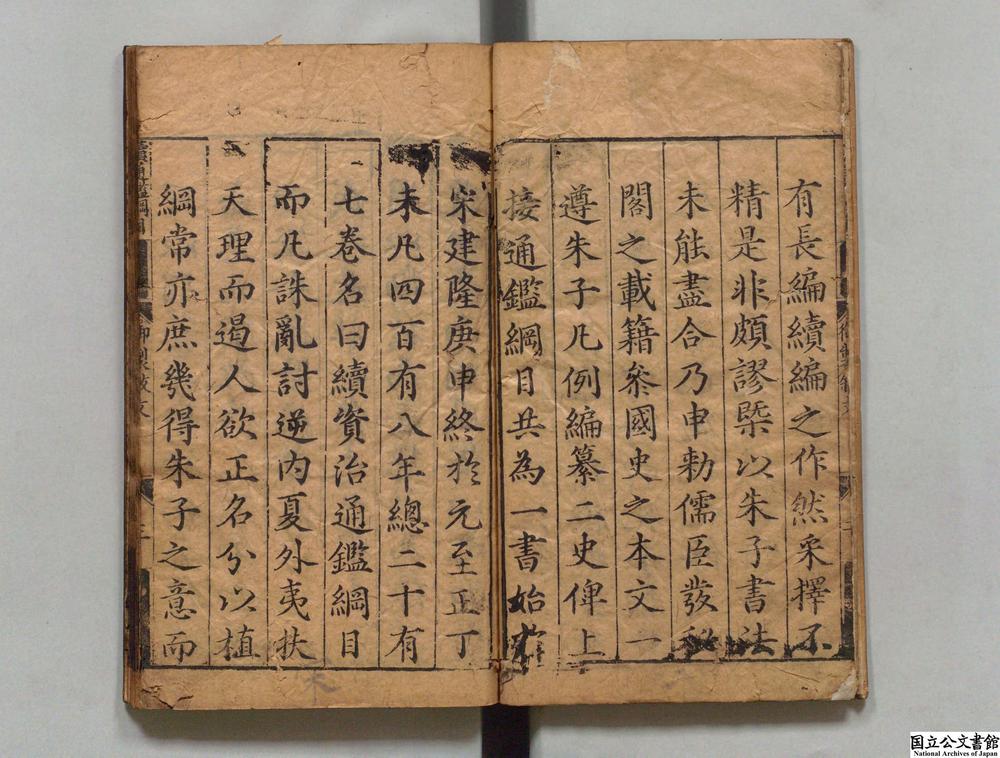 有長編續編之作然采擇不
精是非頗謬槩以朱子書法
未能盡合乃申勅儒臣發秘
閣之載籍叅國史之本文一
遵朱子凡例編纂二史俾上
接通鑑綱目共為一書始
宋建隆庚申終於元至正丁
未凡四百有八年總二十有
七卷名曰續資治通鑑綱目
而凡誅亂討逆内夏外夷扶
天理而遏人欲正名分以植
綱常亦庶幾得朱子之意而
国立公文書館
National Archives of Japan